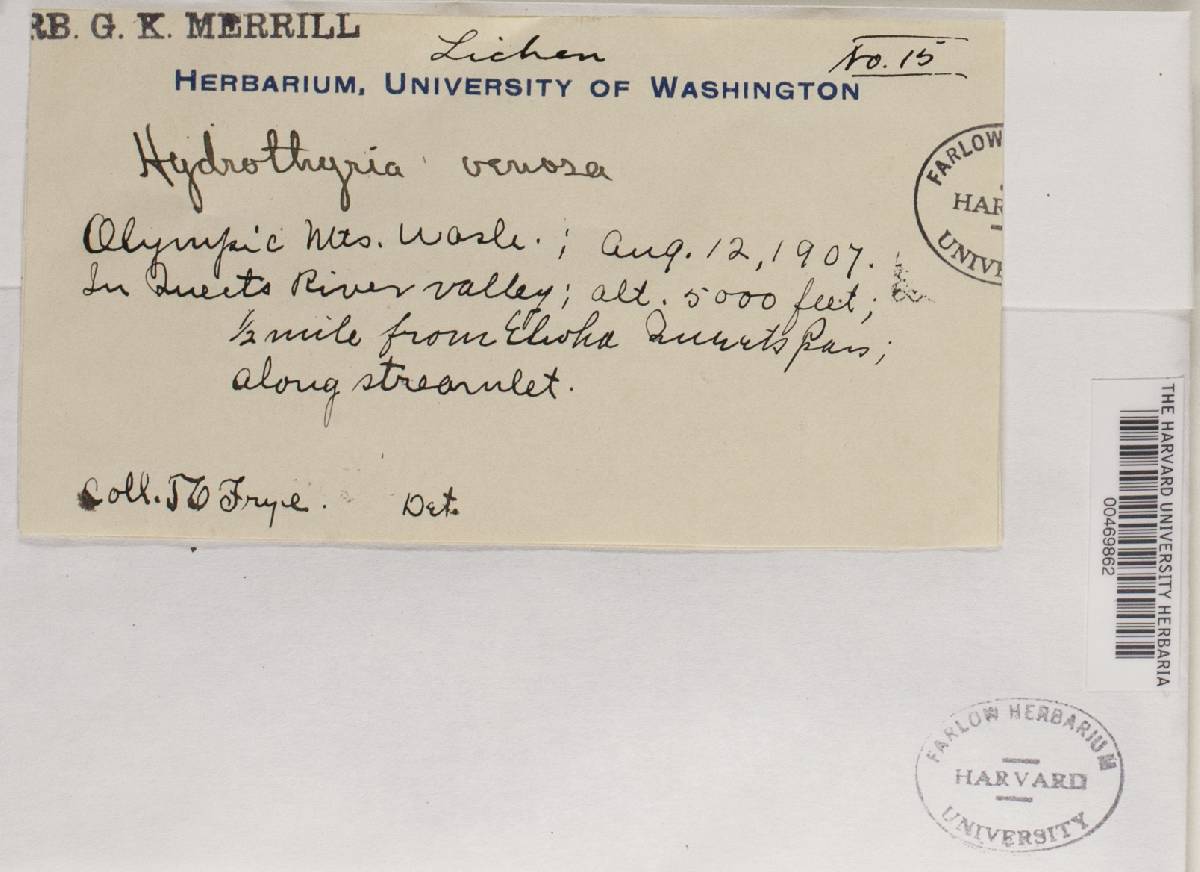 RB. G. K. MERRILL
Lichen
No. 15
HERBARIUM, UNIVERSITY OF WASHINGTON
Hydrothyria venosa
Olympic Mts. Wash. ; Aug. 12, 1907.
In Queets River valley; alt. 5000 feet;
½ mile from Elwha Queets Pass;
along streamlet.
Coll. T C Frye. Det.
FARLOW
HAR
UNIVE
THE HARVARD UNIVERSITY HERBARIA
00469862
FARLOW HERBARIUM
HARVARD
UNIVERSITY